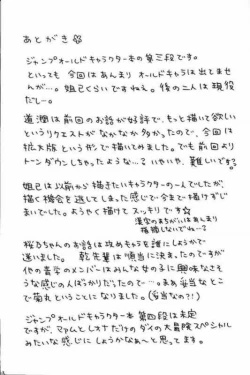 あとがき
ジャンプオールドキャラクター本の第三段です。
といっても 今回はあんまり オールドキャラは出てませ
んが…。妲己くらいですねえ。後の二人は現役
だし…。
蓮潤は前回のお話が好評で、もっと描いて欲しい
というリクエストがなかなか多かったので、今回は
拡大版というカンジで描いてみました。でも前回より
トーンダウンしちゃったような…?いやいや、難しいですね。
妲己は以前から描きたいキャラクターの一人でしたが、
描く機会を逃してしまった感じで今まで描けずじ
まいでした。ようやく描けて スッキリ です☆
漢字のまちがいはあんまり
指摘しないでね…?
桜乃ちゃんのお話は攻めキャラを誰にしようかで
迷いました。乾先輩は順当に決まったのですが
他の青学のメンバーはみんな女の子に興味なさそ
うな感じの人ばっかりだったので…まあ妥当なとこ
で菊丸ということになりました。(妥当なの?!)
ジャンプオールドキャラクター本 第四段は未定
ですが、マァムとレオナだけのダイの大冒険スペシャル
みたいな感じにしようかなあ〜と思ってます。